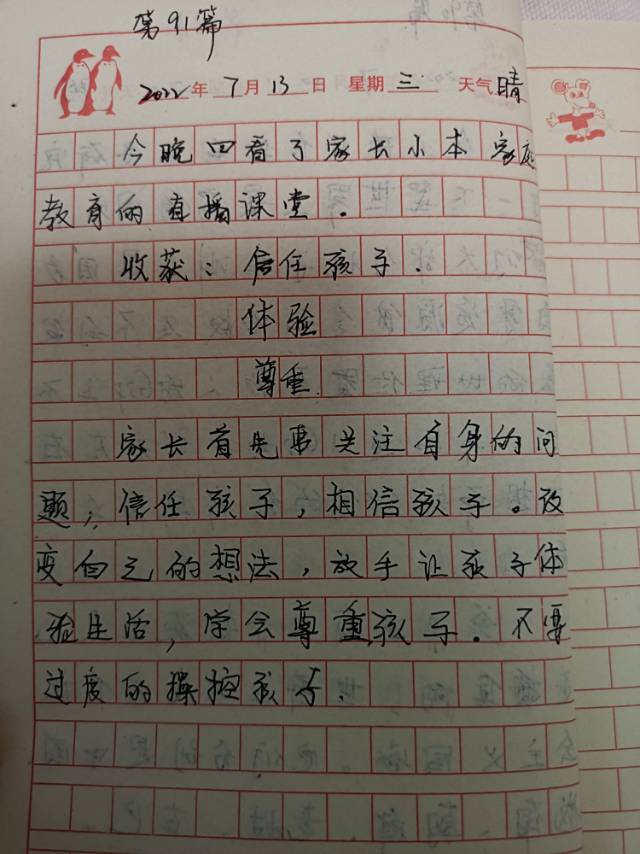 第91篇
2022年7月13日 星期三 天气晴
今晚四看了家长小本家庭
教育的直播课堂。
收获：信任孩子.
体验
尊重
家长首先要关注自身的问
题，信任孩子，相信孩子。改
变自己的想法，放手让孩子体
验生活，学会尊重孩子。不要
过度的操控孩子.